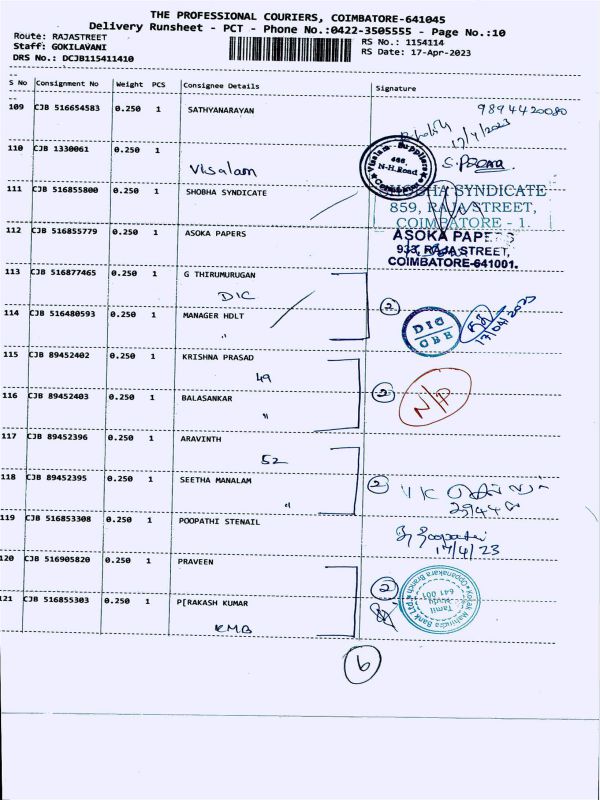 THE PROFESSIONAL COURIERS, COIMBATORE-641045
Delivery Runsheet - PCT - Phone No.:0422-3505555 - Page No.:10
Route: RAJASTREET
Staff: GOKILAVANI
DRS No.: DCJB115411410
RS No.: 1154114
RS Date: 17-Apr-2023
S No Consignment No Weight PCS Consignee Details Signature
109 CJB 516654583 0.250 1 SATHYANARAYAN
9894420080
17/4/2023
110 CJB 1330061 0.250 1
Visalam
Visalam Suppliers
N-H.Road
Coimbatore
111 CJB 516855800 0.250 1 SHOBHA SYNDICATE
SHOBHA SYNDICATE
859, RAJA STREET,
COIMBATORE - 1.
112 CJB 516855779 0.250 1 ASOKA PAPERS
ASOKA PAPERS
933, RAJA STREET,
COIMBATORE-641001.
113 CJB 516877465 0.250 1 G THIRUMURUGAN
DIC
2
114 CJB 516480593 0.250 1 MANAGER HDLT
"
DIC
CBE
17/04/2023
115 CJB 89452402 0.250 1 KRISHNA PRASAD
49
2
N/P
116 CJB 89452403 0.250 1 BALASANKAR
"
117 CJB 89452396 0.250 1 ARAVINTH
52
118 CJB 89452395 0.250 1 SEETHA MANALAM
"
2
29440
119 CJB 516853308 0.250 1 POOPATHI STENAIL
Poopathi
17/4/23
120 CJB 516905820 0.250 1 PRAVEEN
2
Kotak Mahindra Bank Ltd
Oppanakara Branch
Tamil Nadu
641 001
121 CJB 516855303 0.250 1 P[RAKASH KUMAR
KMB
6